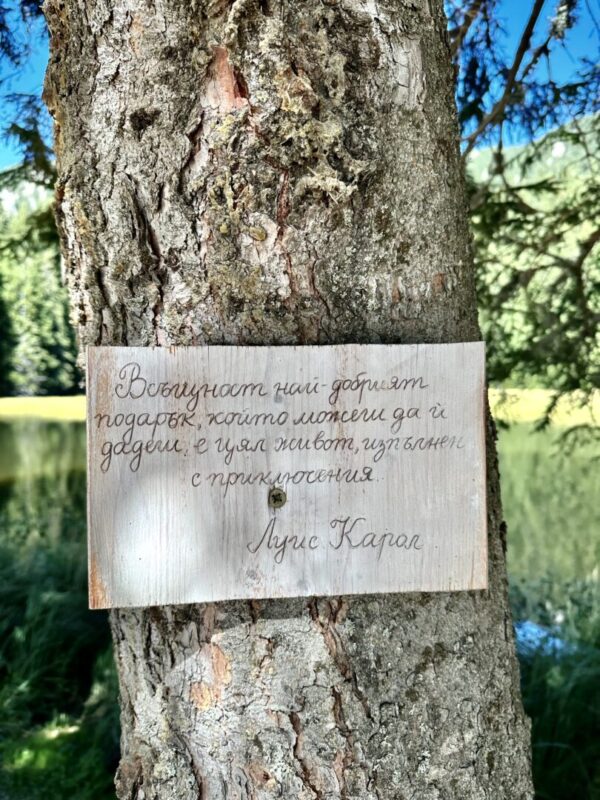 Всъщност най-добрият
подарък, който можеш да ѝ
дадеш, е цял живот, изпълнен
с приключения.
Луис Карол